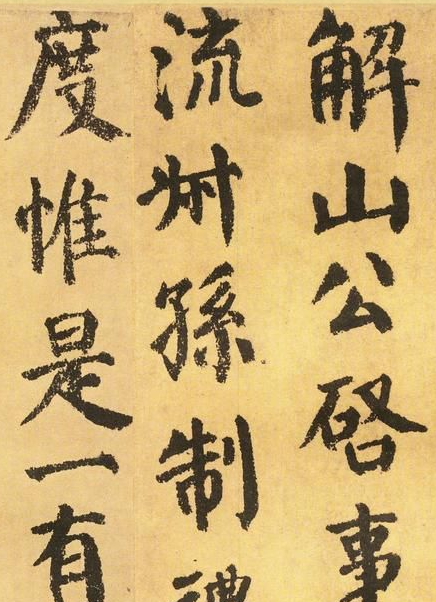 解山公啓事
流州孫制禮
度惟是一有